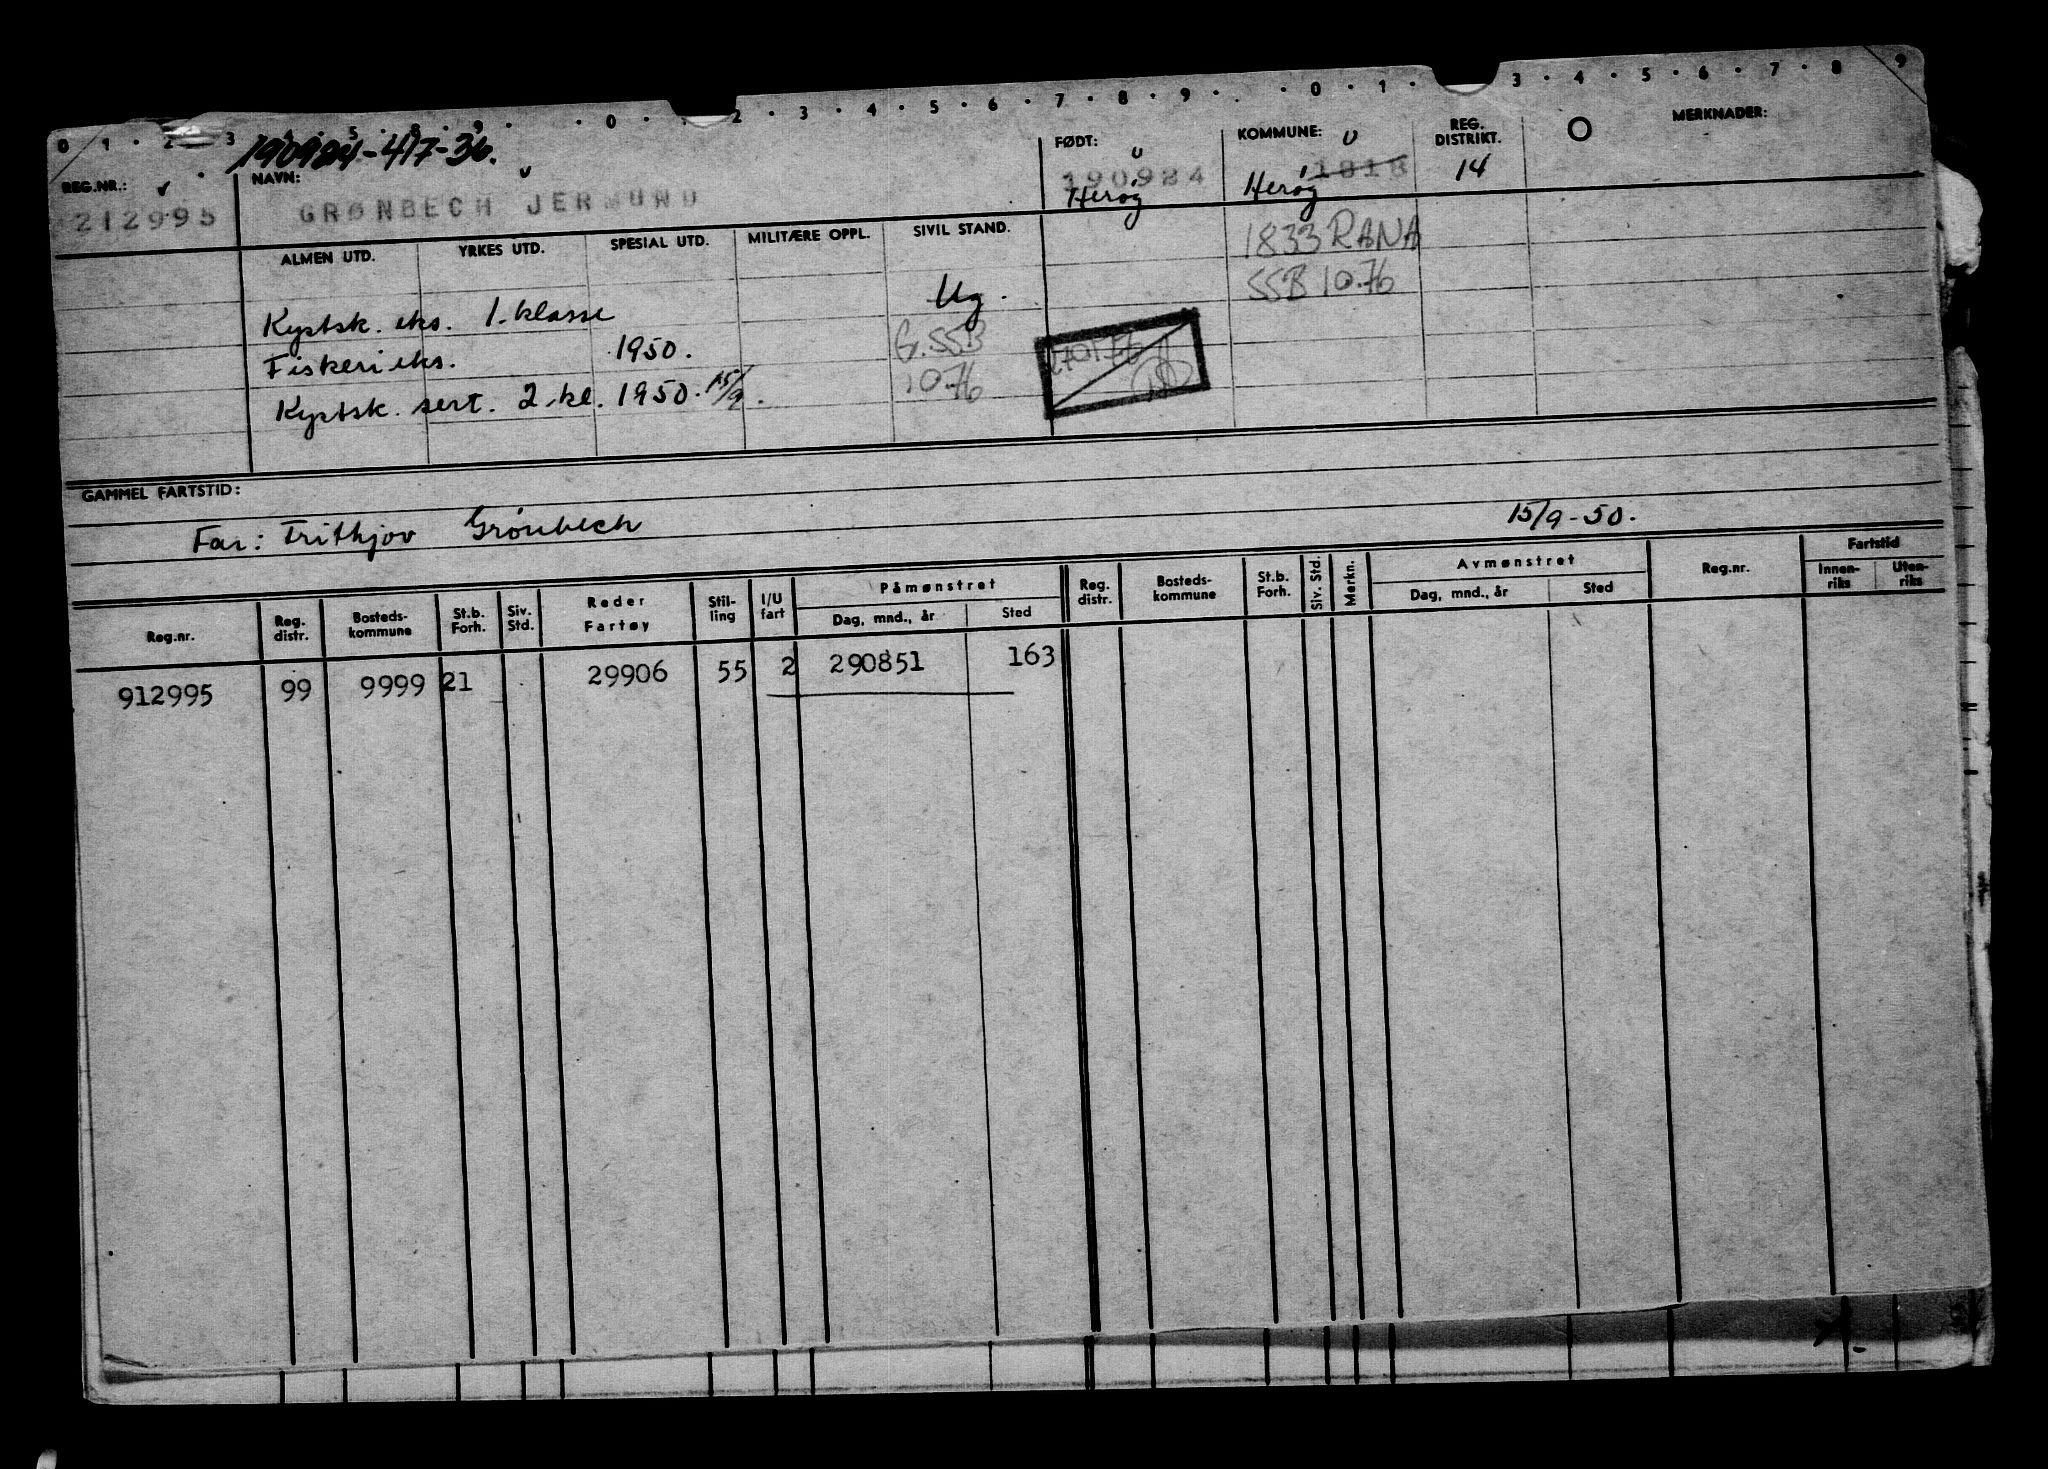 0 1 · 2 · 3 5 · 8 · 9 · · 0 · · 2 · 3 · 4 · 5 · 6 · 7 · 8 · 9 · · 0 · 1 · 3 · 4 · 5 · 6 · 7 · 8 9
190924-417-36.
REG.NR.: NAVN: FØDT: KOMMUNE: REG. DISTRIKT. MERKNADER:
212995 GRØNBECH JERMUND 190924 Herøy 1818 Herøy 14
ALMEN UTD. YRKES UTD. SPESIAL UTD. MILITÆRE OPPL. SIVIL STAND. 1833 RANA
SSB 10.76
Kystsk. eks. 1. klasse Ug.
Fiskerieks. 1950. G. SSB
Kystsk. sert. 2. kl. 1950. 15/9. 10.76
GAMMEL FARTSTID:
Far: Frithjov Grønbech 15/9-50.
Reg.nr. Reg. distr. Bosteds-kommune St.b. Forh. Siv. Std. Reder Fartøy Stil-ling I/U fart Påmønstret Dag, mnd., år Sted Reg. distr. Bosteds-kommune St.b. Forh. Siv. Std. Merkn. Avmønstret Dag, mnd., år Sted Reg.nr. Fartstid Innen-riks Uten-riks
912995 99 9999 21 29906 55 2 290851 163